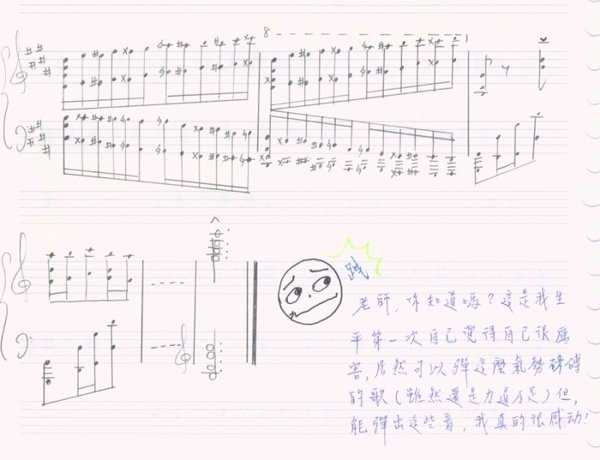 8
跩
老師,你知道嗎?這是我生
平第一次自己覺得自己很厲
害,居然可以彈這麼氣勢磅礡
的歌(雖然還是力道不足)但,
能彈出這些音,我真的很感动!